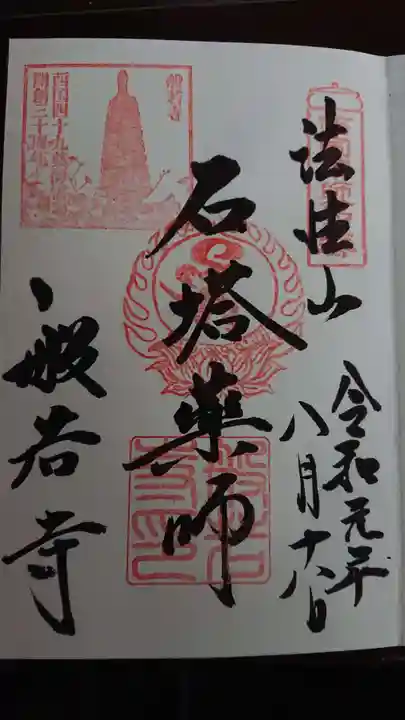 法性山
令和元年
八月十八日
石塔薬師
般若寺
般若寺
西国四十九薬師霊場
開創三十周年